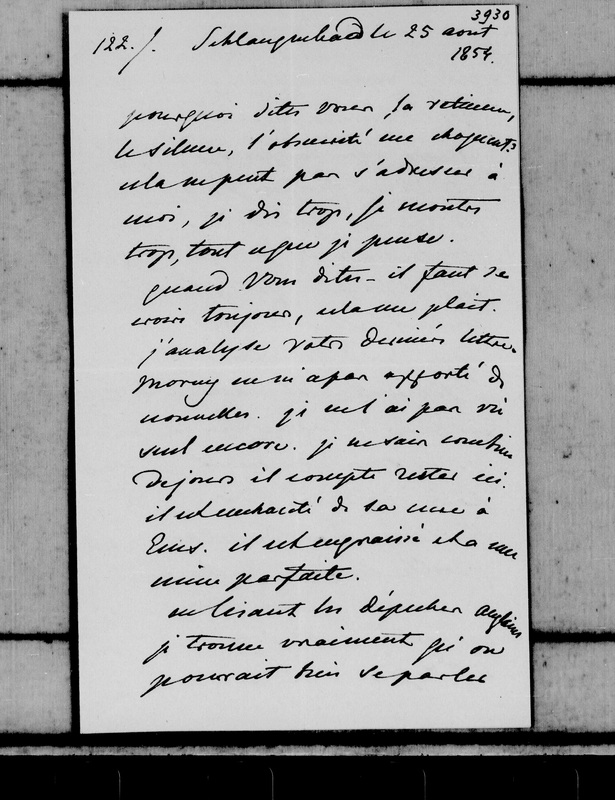 3930
122. /. Schlangenbad le 25 aout
1854.
pourquoi dites vous, la retenue,
le silence, l'obscurité me choquent?
cela ne peut pas s'adresser à
moi, je dis trop, je montre
trop, tout ce que je pense.
quand vous dites - il faut se
croire toujours, cela me plait.
j'analyse votre dernière lettre.
Morny ne m'a pas apporté de
nouvelles. je ne l'ai pas vu
seul encore. je ne sais combien
de jours il compte rester ici.
il est enchanté de sa cure à
Ems. il est engraissé et a une
mine parfaite.
en lisant les dépêches anglaises
je trouve vraiment qu'on
pourrait bien se parler